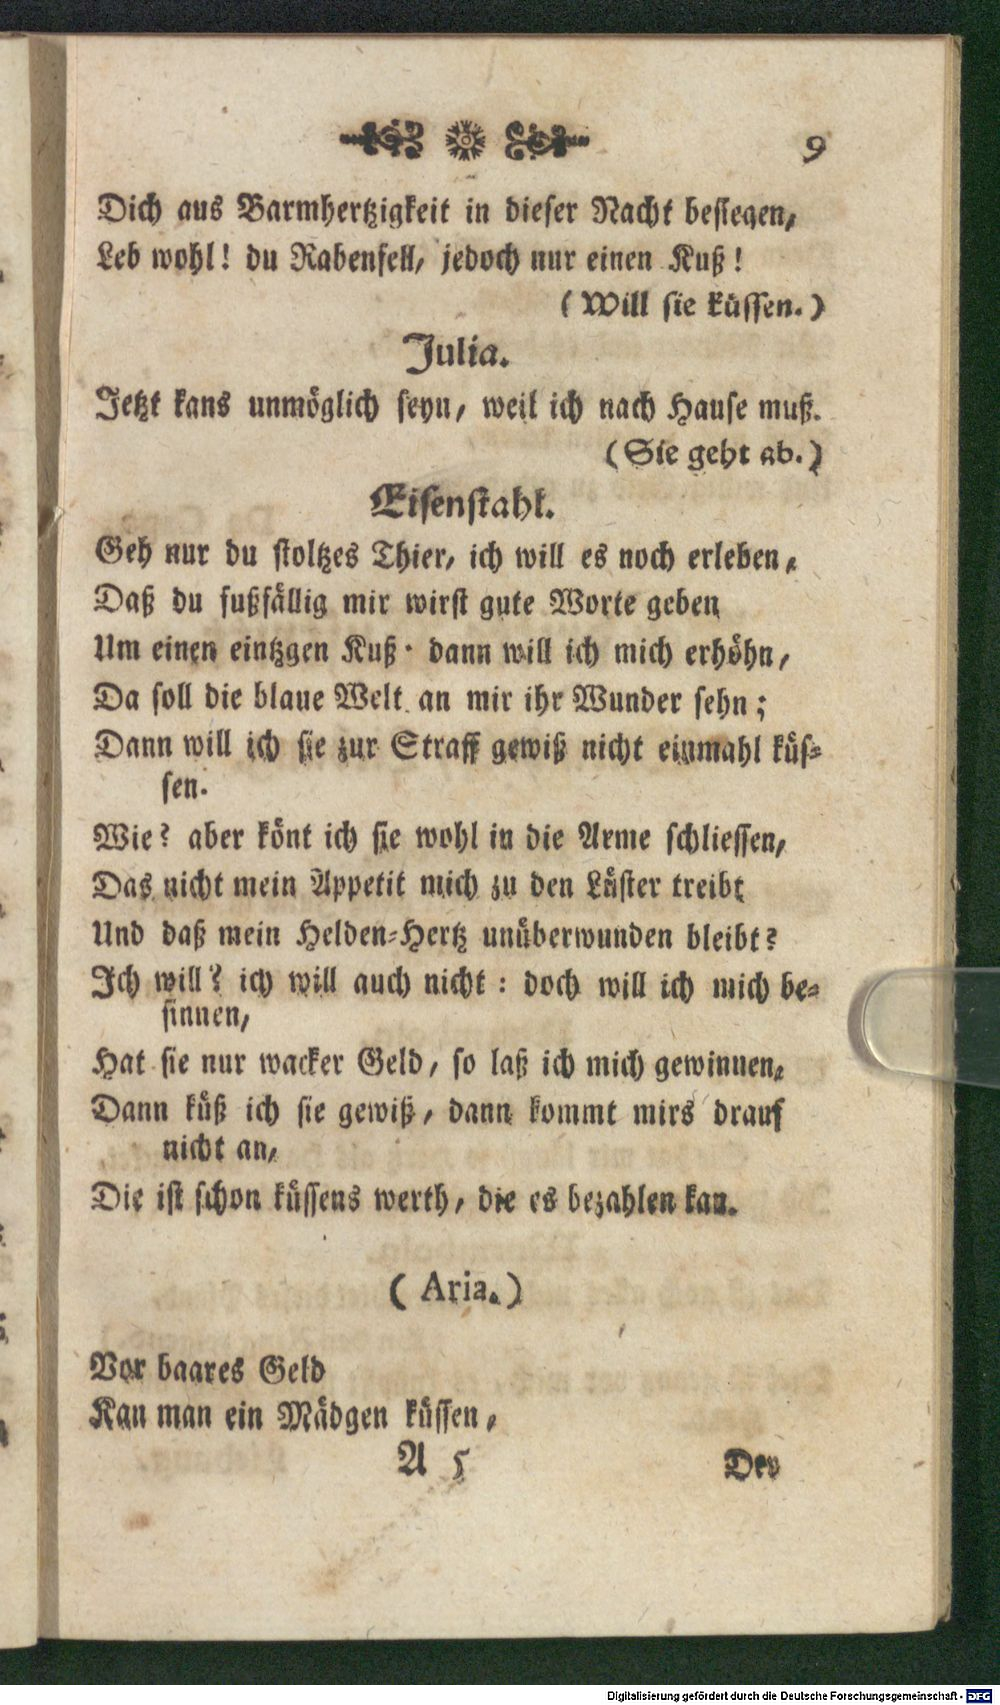 9
Dich aus Barmhertzigkeit in dieser Nacht besiegen,
Leb wohl! du Rabenfell, jedoch nur einen Kuß!
(Will sie küssen.)
Julia.
Jetzt kans unmöglich seyn, weil ich nach Hause muß.
(Sie geht ab.)
Eisenstahl.
Geh nur du stoltzes Thier, ich will es noch erleben,
Daß du fußfällig mir wirst gute Worte geben
Um einen eintzgen Kuß· dann will ich mich erhöhn,
Da soll die blaue Welt an mir ihr Wunder sehn;
Dann will ich sie zur Straff gewiß nicht einmahl küs-
sen.
Wie? aber könt ich sie wohl in die Arme schliessen,
Das nicht mein Appetit mich zu den Lüster treibt
Und daß mein Helden-Hertz unüberwunden bleibt?
Ich will? ich will auch nicht: doch will ich mich be-
sinnen,
Hat sie nur wacker Geld, so laß ich mich gewinnen,
Dann küß ich sie gewiß, dann kommt mirs drauf
nicht an,
Die ist schon küssens werth, die es bezahlen kan.
(Aria.)
Vor baares Geld
Kan man ein Mädgen küssen,
A 5 Der
Digitalisierung gefördert durch die Deutsche Forschungsgemeinschaft - DFG